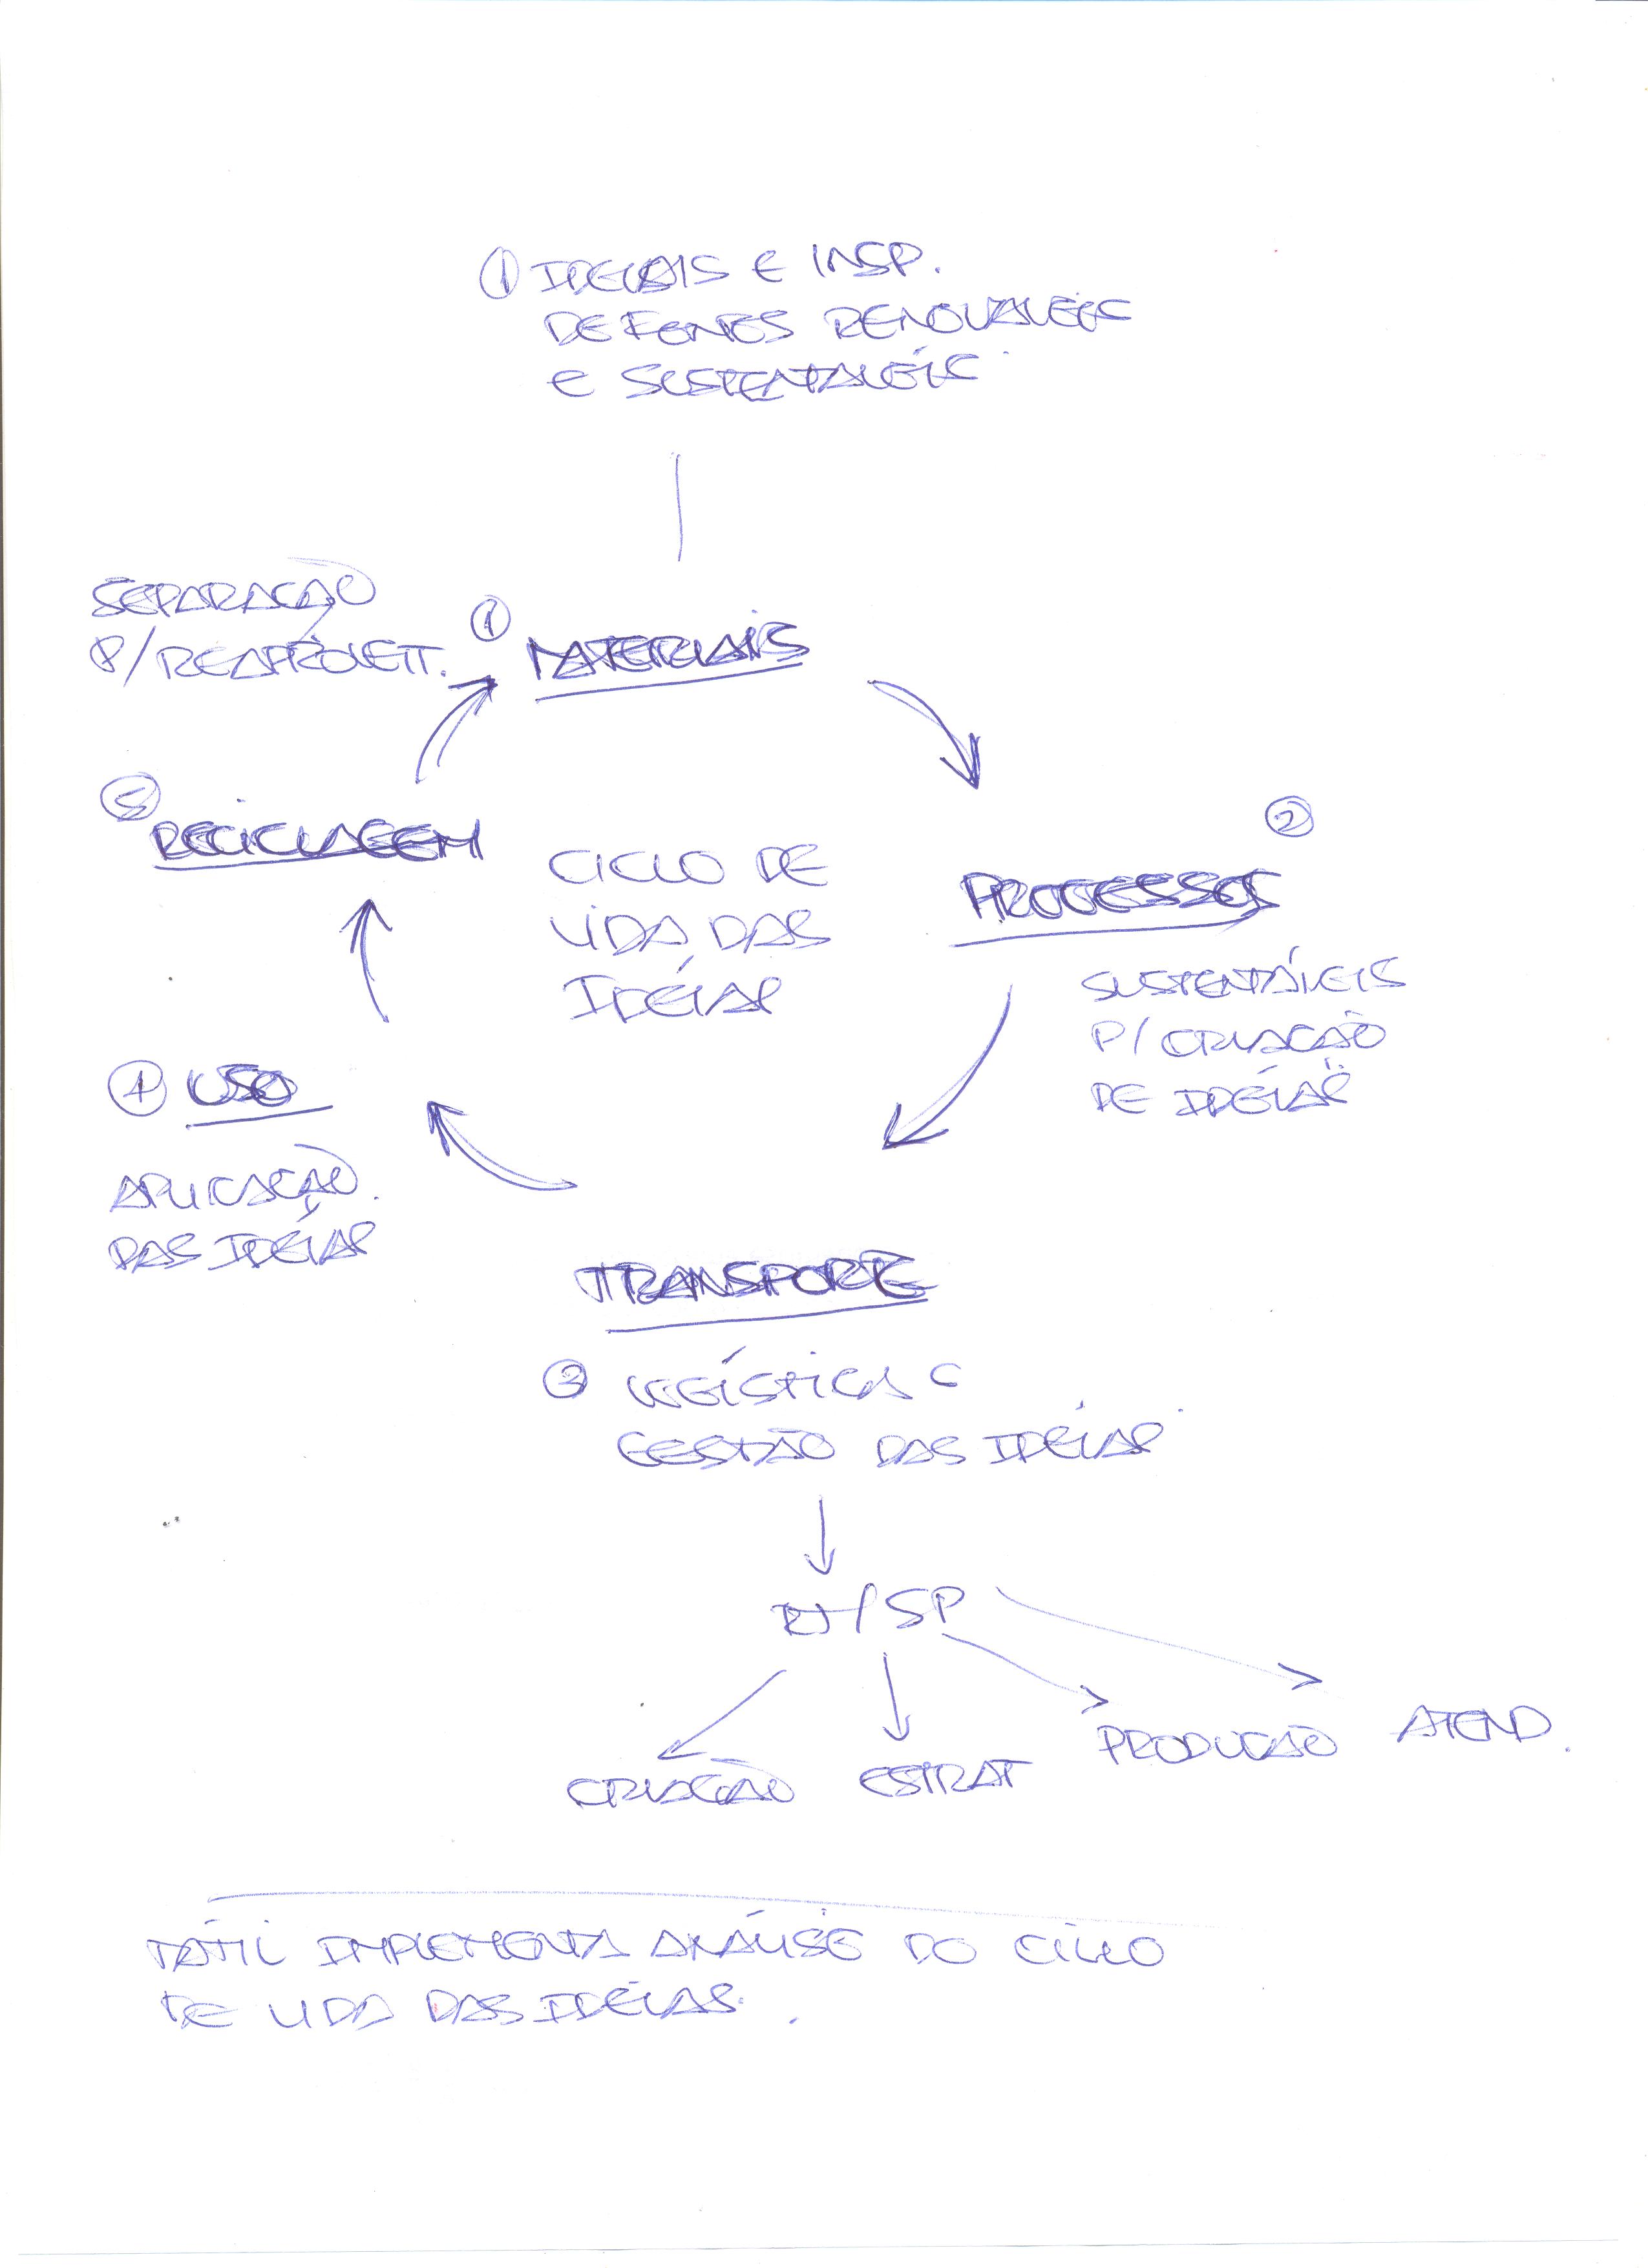 ① IDEIAIS E INSP.
DE FONTES RENOVÁVEIS
E SUSTENTÁVEIS
SEPARAÇÃO
P/REAPROVEIT.
① MATERIAIS
⑤ RECICLAGEM
②
PROCESSOS
CICLO DE
VIDA DAS
IDÉIAS
SUSTENTÁVEIS
P/ CRIAÇÃO
DE IDÉIAS
④ USO
APLICAÇÃO
DAS IDÉIAS
TRANSPORTE
③ LOGÍSTICA E
GESTÃO DAS IDÉIAS
RJ/SP
CRIAÇÃO ESTRAT PRODUÇÃO ATEND.
TÁTIL IMPLEMENTA ANÁLISE DO CICLO
DE VIDA DAS IDÉIAS.